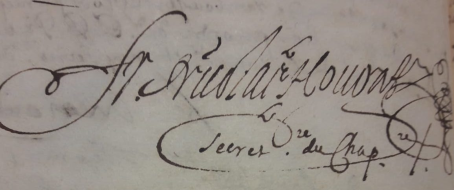 fr. Nicolas Houdart
Secret.re du Chap.re